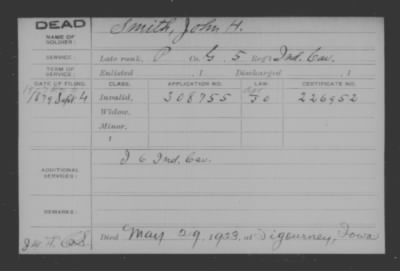 DEAD
NAME OF SOLDIER: Smith, John H.
SERVICE: Late rank, P Co. G, 5 Reg't Ind. Cav.
TERM OF SERVICE: Enlisted , 1 Discharged , 1
DATE OF FILING. CLASS. APPLICATION NO. LAW. CERTIFICATE NO.
1879 Sept 4 Invalid, 308755 226952
Widow,
Minor,
ADDITIONAL SERVICES: I 6 Ind. Cav.
REMARKS:
Died May 29, 1923, at Sigourney, Iowa